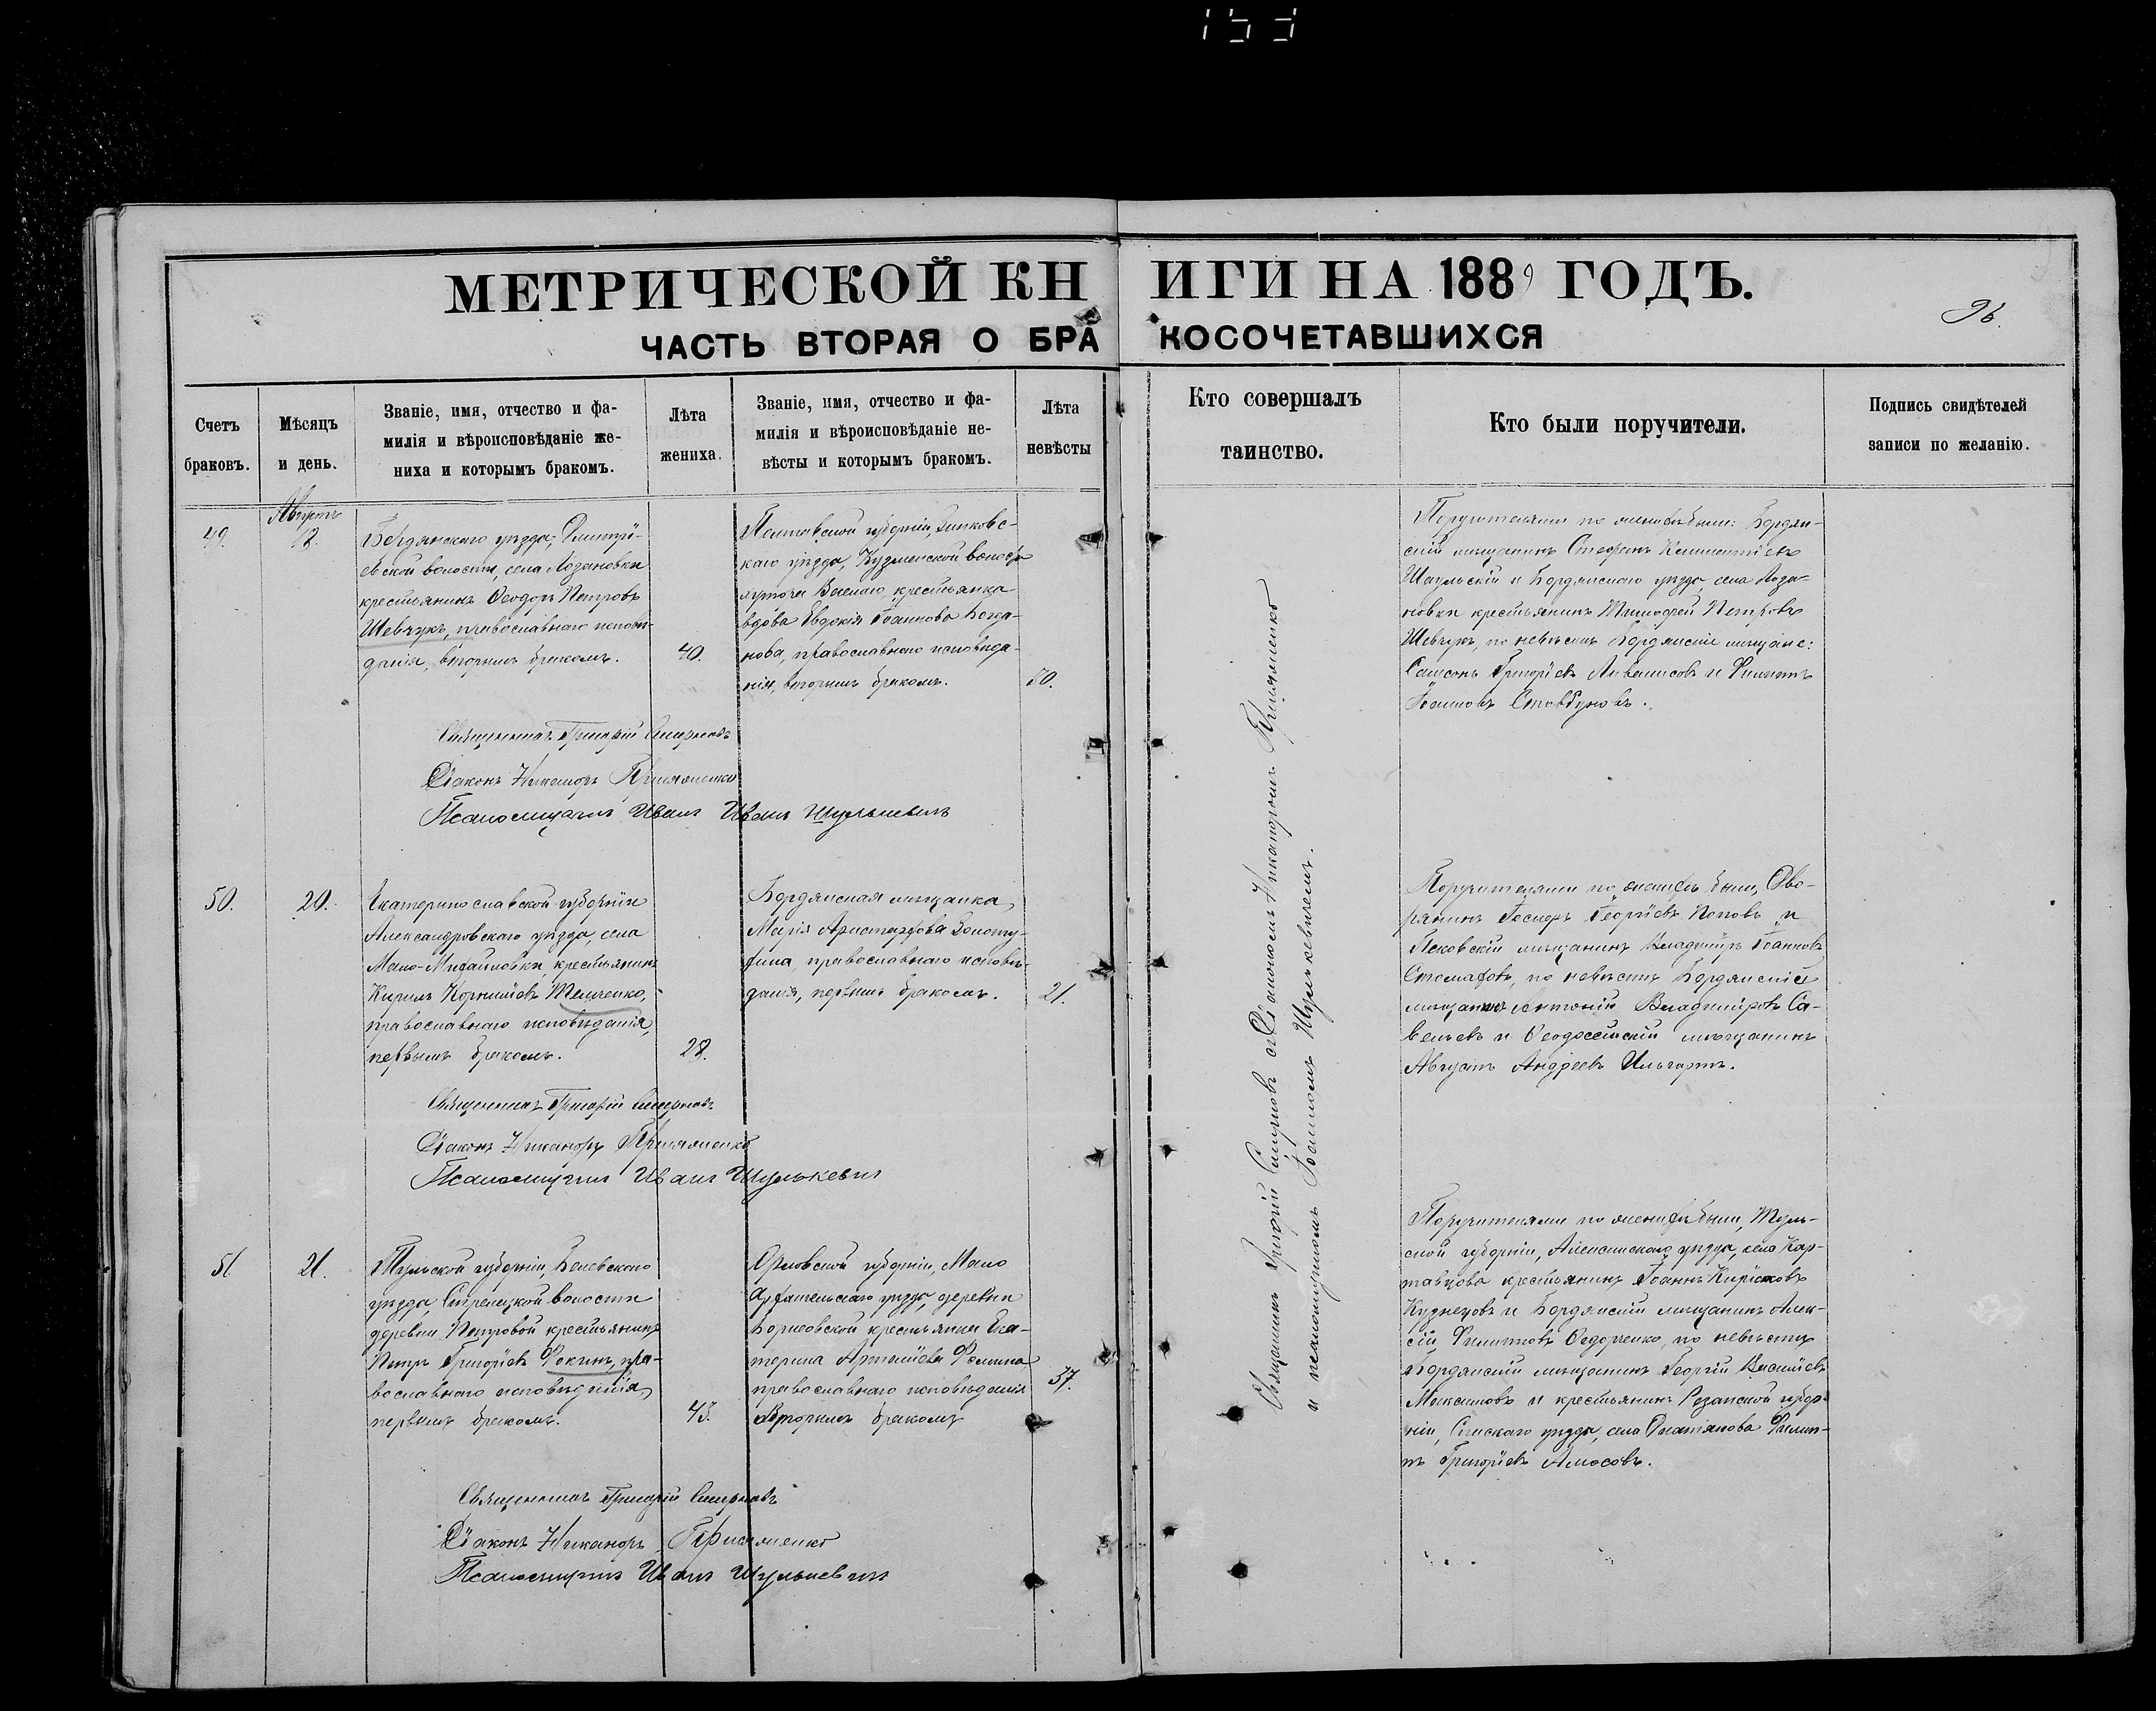 МЕТРИЧЕСКОЙ КНИГИ НА 1889 ГОДЪ.
96.
ЧАСТЬ ВТОРАЯ О БРАКОСОЧЕТАВШИХСЯ
Счетъ
браковъ.
Мѣсяцъ
и день.
Званіе, имя, отчество и фа-
милія и вѣроисповѣданіе же-
ниха и которымъ бракомъ.
Лѣта
жениха.
Званіе, имя, отчество и фа-
милія и вѣроисповѣданіе не-
вѣсты и которымъ бракомъ.
Лѣта
невѣсты
Кто совершалъ
таинство.
Кто были поручители.
Подпись свидѣтелей
записи по желанію.
49.
Августъ
Бердянскаго уѣзда, Дмитрі-
евской волости, села Лозановки
крестьянинъ Ѳеодоръ Петровъ
Шевчукъ, православнаго исповѣ-
данія, вторымъ бракомъ.
40.
Полтавской губерніи, Зинковс-
каго уѣзда, Кузменской волости
хутора крестьянка
вдова Евдокія Іоаннова
православнаго исповѣда-
нія, вторымъ бракомъ.
30.
Поручителями по женихѣ были: Бердян-
скій мѣщанинъ Стефанъ Климентіевъ
и Бердянскаго уѣзда, села Лоза-
новки крестьянинъ Тимофей Петровъ
Шевчукъ, по невѣстѣ Бердянскіе мѣщане:
Самсонъ Григоріевъ и Филиппъ
Іоанновъ
Священникъ Григорій Смирновъ
Діаконъ Никаноръ
Псаломщикъ Иванъ Иванъ Шулькевичъ
Священникъ Григорій Смирновъ съ діакономъ Никаноромъ
и псаломщикомъ Іоанномъ Шулькевичемъ.
50.
20.
Екатеринославской губерніи
Александровскаго уѣзда, села
Мало-Михайловки, крестьянинъ
Кирилъ Корниліевъ
православнаго исповѣданія,
первымъ бракомъ.
28.
Бердянская мѣщанка
Марія Аристархова Золоту-
хина, православнаго исповѣ-
данія, первымъ бракомъ.
21.
Поручителями по женихѣ были, Дво-
рянинъ Іосифъ Георгіевъ Поповъ и
Псковскій мѣщанинъ Владиміръ Іоанновъ
по невѣстѣ Бердянскій
мѣщанинъ Антоній Владиміровъ Са-
вельевъ и Ѳеодосійскій мѣщанинъ
Августъ Андреевъ
Священникъ Григорій Смирновъ
Діаконъ Никаноръ
Псаломщикъ Иванъ Шулькевич
51
21.
Тульской губерніи, Белевскаго
уѣзда, Стрелецкой волости
деревни Петровой крестьянинъ
Петръ Григоріевъ Фокинъ, пра-
вославнаго исповѣданія,
первымъ бракомъ.
Орловской губерніи, Мало
Архангельскаго уѣзда, деревни
Борисовской крестьянка Ека-
терина Артеміева Фомина
православнаго исповѣданія
вторымъ бракомъ
37.
Поручителями по женихѣ были, Туль-
ской губерніи, Алексинскаго уѣзда, села Кар-
тавцова крестьянинъ Іоаннъ
Кузнецовъ и Бердянскій мѣщанинъ Алек-
сій Филипповъ Федорченко, по невѣстѣ
Бердянскій мѣщанинъ Георгій Василіевъ
Максимовъ и крестьянинъ Резанской губер-
ніи, Спаскаго уѣзда, села Филип-
пъ Григоріевъ Амосовъ.
Священникъ Григорій Смирновъ
Діаконъ Никаноръ
Псаломщикъ Иванъ Шулькевичъ